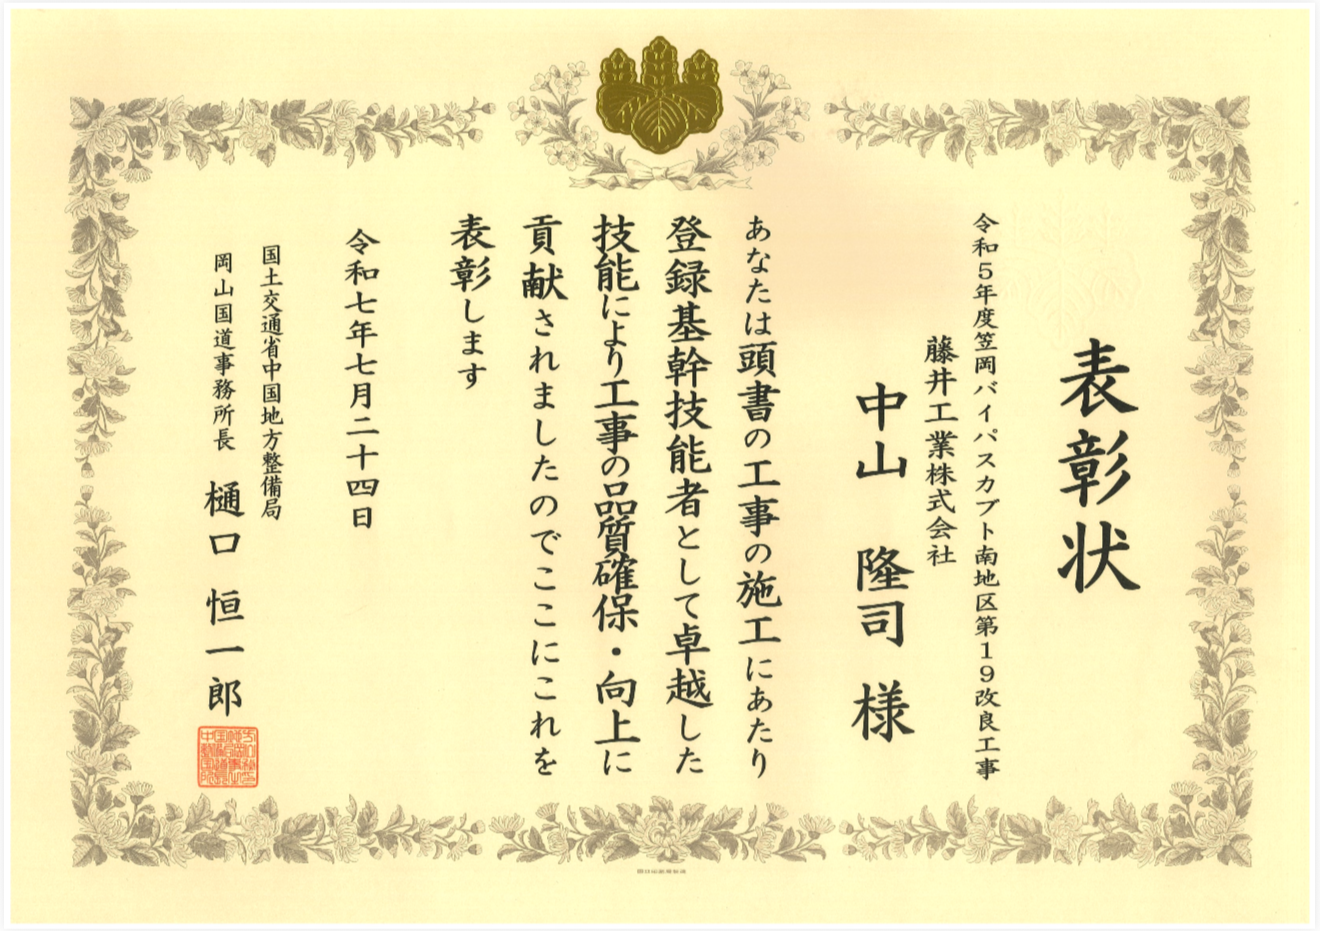 表彰状
令和5年度笠岡バイパスカブト南地区第19改良工事
藤井工業株式会社
中山 隆司 様
あなたは頭書の工事の施工にあたり
登録基幹技能者として卓越した
技能により工事の品質確保・向上に
貢献されましたのでここにこれを
表彰します
令和七年七月二十四日
国土交通省中国地方整備局
岡山国道事務所長 樋口 恒一郎